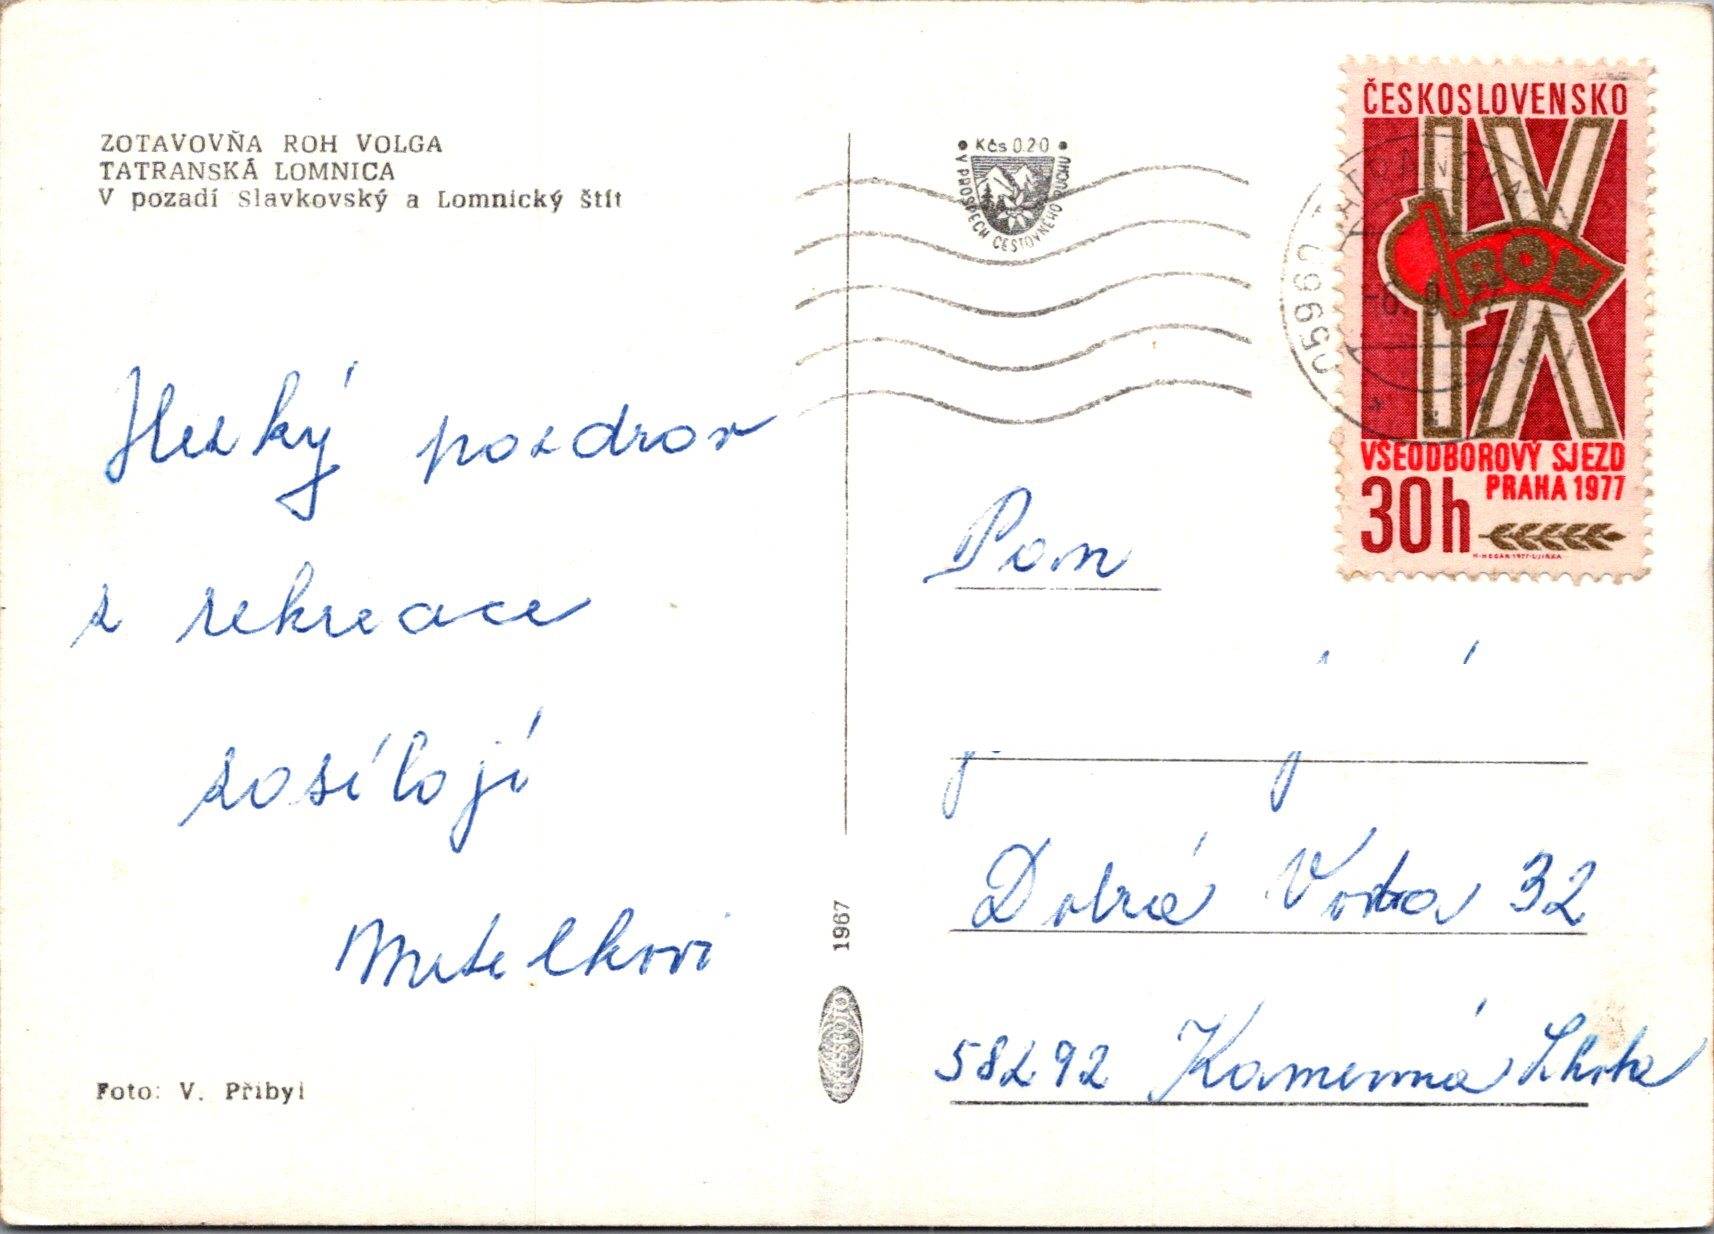 ZOTAVOVŇA ROH VOLGA
TATRANSKÁ LOMNICA
V pozadí Slavkovský a Lomnický štít
Hezký pozdrav
z rekreace
zasílají
Metelkovi
Foto: V. Přibyl
1967
Kčs 0.20
V PROSPĚCH CESTOVNÉHO RUCHU
059 60
ČESKOSLOVENSKO
IX
ROH
VŠEODBOROVÝ SJEZD
PRAHA 1977
30h
Pan
Dobrá Voda 32
58292 Kamenná Lhota